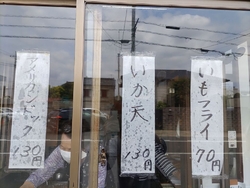 いもフライ
70円
いか天
130円
アメリカンドック
130円